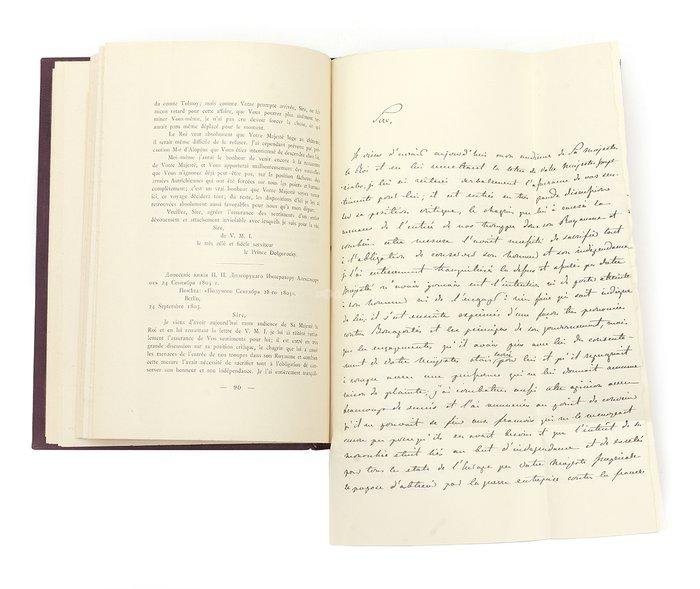 du comte Tolstoy; mais comme Votre prompte arrivée, Sire, ne
retard pour cette affaire, que Vous pourrez plus aisément ter-
miner Vous-même, je n'ai pas cru devoir forcer la chose, qui
aurait paru même déplacé pour le moment.
Le Roi veut absolument que Votre Majesté loge au château,
il serait même difficile de le refuser. J'ai cependant prévenu par pré-
caution M-r d'Alopéus que Vous étiez intentionné de descendre chez lui.
Moi-même j'aurai le bonheur de venir encore à la rencontre
de Votre Majesté, et Vous apporterai malheureusement des nouvelles
que Vous n'ignorez déjà peut-être pas, sur la position fâcheuse des
armées Autrichiennes qui ont été forcées sur tous les points et battues
complètement; c'est un vrai bonheur que Votre Majesté soyez venue
ici, ce voyage décidera tout; du reste, les dispositions d'ici je les ai
retrouvées absolument aussi favorables pour nous qu'à mon départ.
Veuillez, Sire, agréer l'assurance des sentiments d'un entier
dévouement et attachement inviolable avec lesquels je suis pour la vie
Sire,
de V. M. I.
le très zélé et fidèle serviteur
le Prince Dolgorouky.
Донесеніе князя П. П. Долгорукаго Императору Александру
отъ 24 Сентября 1805 г.
Помѣта: «Получено Сентября 28-го 1805».
Berlin,
24 Septembre 1805.
Sire,
Je viens d'avoir aujourd'hui mon audience de Sa Majesté le
Roi et en lui remettant la lettre de V. M. I. je lui ai réitéré verba-
lement l'assurance de Vos sentiments pour lui; il est entré en très
grande discussion sur sa position critique, le chagrin que lui a causé
les menaces de l'entrée de nos troupes dans son Royaume et combien
cette mesure l'avait nécessité de sacrifier tout à l'obligation de con-
server son honneur et son indépendance. Je l'ai entièrement tranquil-
— 90 —
Sire,
Je viens d'avoir aujourd'hui mon audience de Sa Majesté
le Roi et en lui remettant la lettre de Votre Majesté Impé-
riale, je lui ai réitéré verbalement l'assurance de vos sen-
timents pour lui; il est entré en très grande discussion
sur sa position critique, le chagrin que lui a causé la
menaces de l'entrée de nos trouppes dans son Royaume et
combien cette mesure l'avait nécessité de sacrifier tout
à l'obligation de conserver son honneur et son indépendance
je l'ai entièrement tranquilisé là dessus et assuré que Votre
Majesté n'avait jamais eu l'intention ni de porter atteinte
à son honneur ni de l'engager à rien faire qui soit indique
de lui, il s'est ensuite exprimé d'une façon très prononcée
contre Bonaparte et les principes de son gouvernement, mais
que les engagements, qu'il avait pris avec lui du consente-
ment de Votre Majesté, étaient sacrés pour lui et qu'il répugnait
à rompre avec une puissance qui ne lui donnait aucune
raison de plainte, j'ai combattu aussi cette opinion avec
beaucoup de succès et l'ai amené au point de convenir
qu'il ne pouvait se fier aux français qui ne le ménageait
encore que parce qu'ils en avait besoin et que l'intérêt de sa
monarchie était lié au but d'indépendance et de sûreté
pour tous les états de l'Europe que Votre Majesté Impériale
se propose d'obtenir par la guerre entreprise contre la france